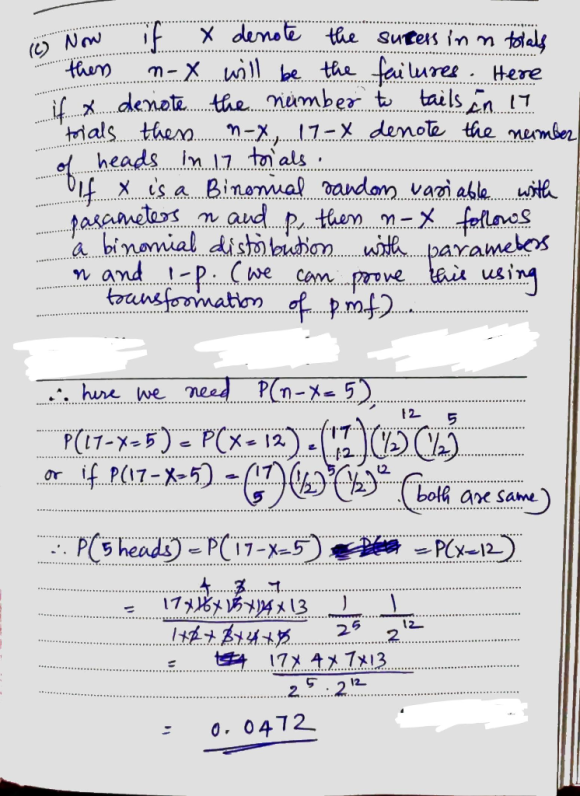 (c) Now if X denote the sucess in n trials
then n-X will be the failures. Here
if X denote the number to tails in 17
trials then n-X, 17-X denote the number
of heads in 17 trials.
If X is a Binomial random variable with
parameters n and p, then n-X follows
a binomial distribution with parameters
n and 1-p. (we can prove this using
transformation of pmf).
∴ here we need P(n-X=5),
P(17-X=5) = P(X=12) = (17 12) (1/2)^12 (1/2)^5
or if P(17-X=5) = (17 5) (1/2)^5 (1/2)^12 (both are same)
∴ P(5 heads) = P(17-X=5) = P(X=12)
4 3 7
= 17×16×15×14×13 / 1×2×3×4×5 1/2^5 1/2^12
= 17×4×7×13 / 2^5 . 2^12
= 0.0472